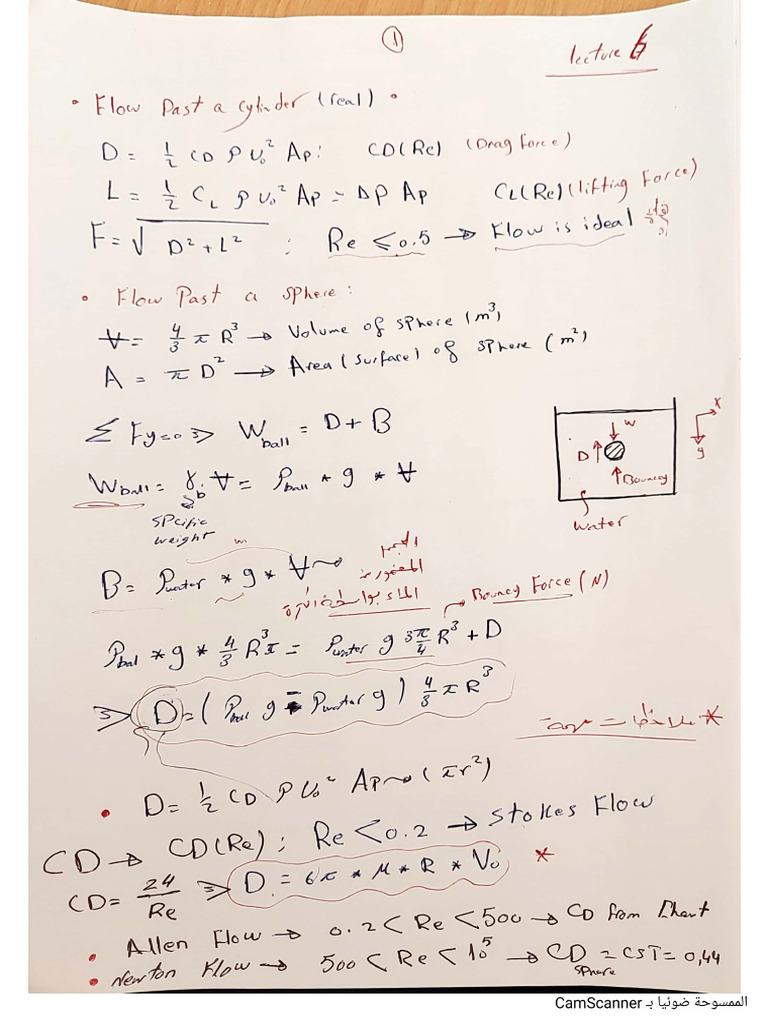 1
Lecture 6
• Flow Past a cylinder (real) •
D = 1/2 CD ρ U₀² Ap : CD(Re) (Drag Force)
L = 1/2 CL ρ U₀² Ap = ΔP Ap CL(Re) (lifting Force)
F = √(D² + L²) : Re ≤ 0.5 → Flow is ideal
• Flow Past a sphere :
V = 4/3 π R³ → Volume of sphere (m³)
A = π D² → Area (surface) of sphere (m²)
Σ Fy = 0 ⇒ W ball = D + B
W ball = γb . V = ρball * g * V
spcific
weight
x
w
D
y
Bouncy
water
B = ρwater * g * V
الحجم
المغمور من
الماء بواسطة الكرة
→ Bouncy Force (N)
ρbal * g * 4/3 R³ π = ρwater g 3π/4 R³ + D
⇒ D = (ρball g - ρwater g) 4/3 π R³
* ملاحظات مهمة
• D = 1/2 CD ρ U₀² Ap → (πr²)
CD → CD(Re) ; Re < 0.2 → Stokes Flow
CD = 24/Re ⇒ D = 6π * μ * R * V₀ *
• Allen Flow → 0.2 < Re < 500 → CD from Chart
• Newton Flow → 500 < Re < 10⁵ → CD sphare = CST = 0,44
الممسوحة ضوئيا بـ CamScanner